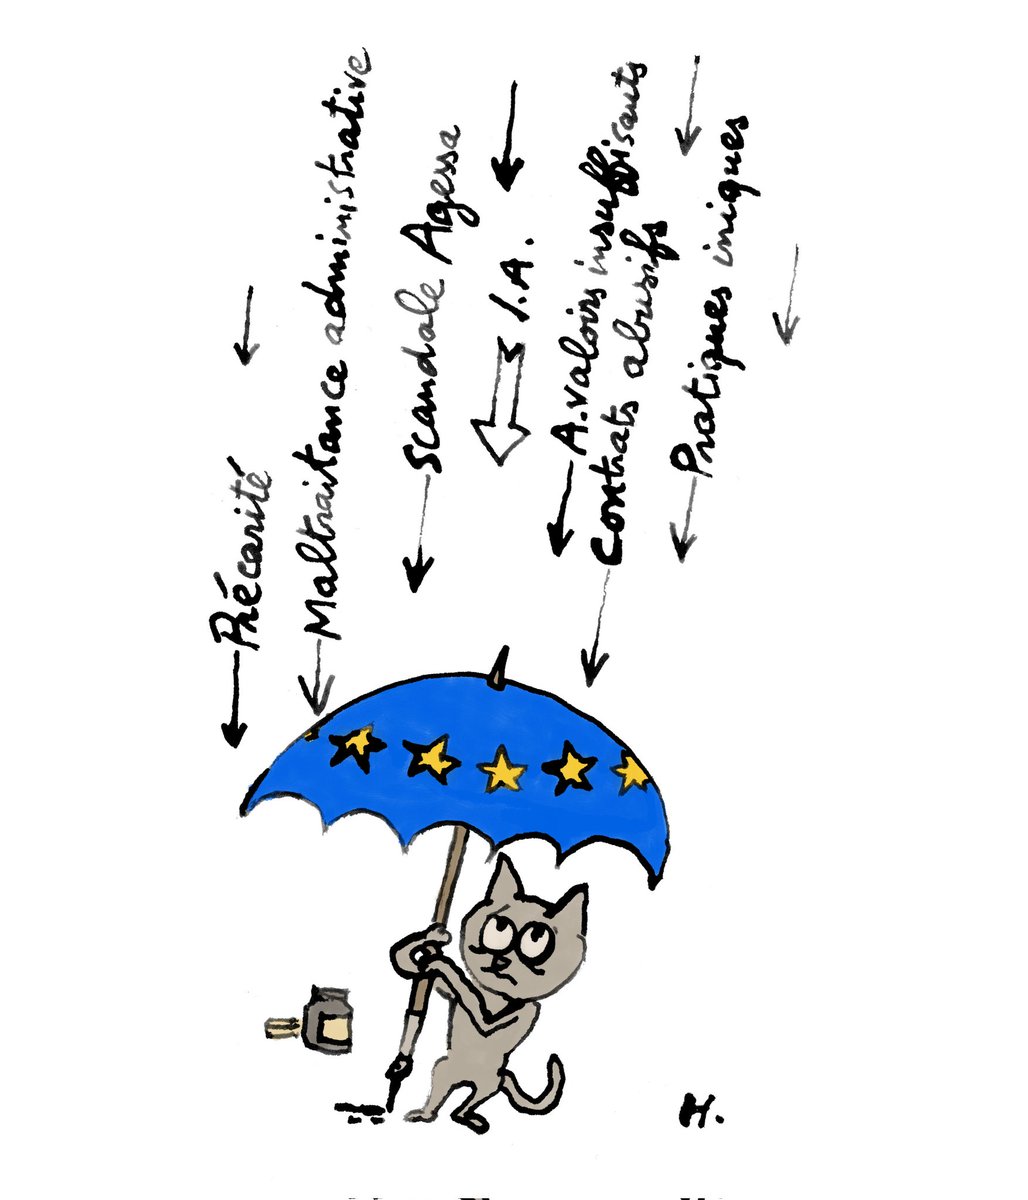 Précarité
Maltraitance administrative
Scandale Agessa
I.A.
A.valoirs insuffisants
Contrats abusifs
Pratiques iniques
H.